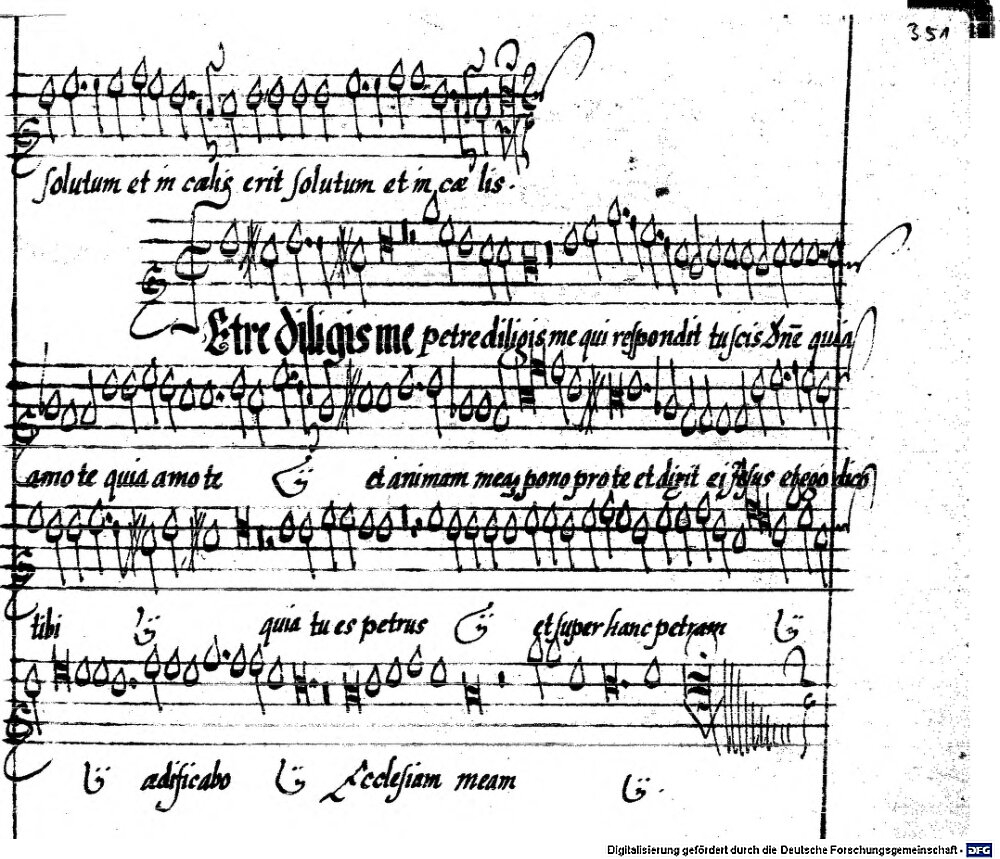 351
solutum et in cælis erit solutum et in cæ lis.
Etre diligis me petre diligis me qui respondit tu scis dñe quia
amo te quia amo te ij et animam meaʒ pono pro te et dixit ei Jesus et ego dico
tibi ij quia tu es petrus ij et super hanc petram ij
ij ædificabo ij Ecclesiam meam ij.
Digitalisierung gefördert durch die Deutsche Forschungsgemeinschaft - DFG